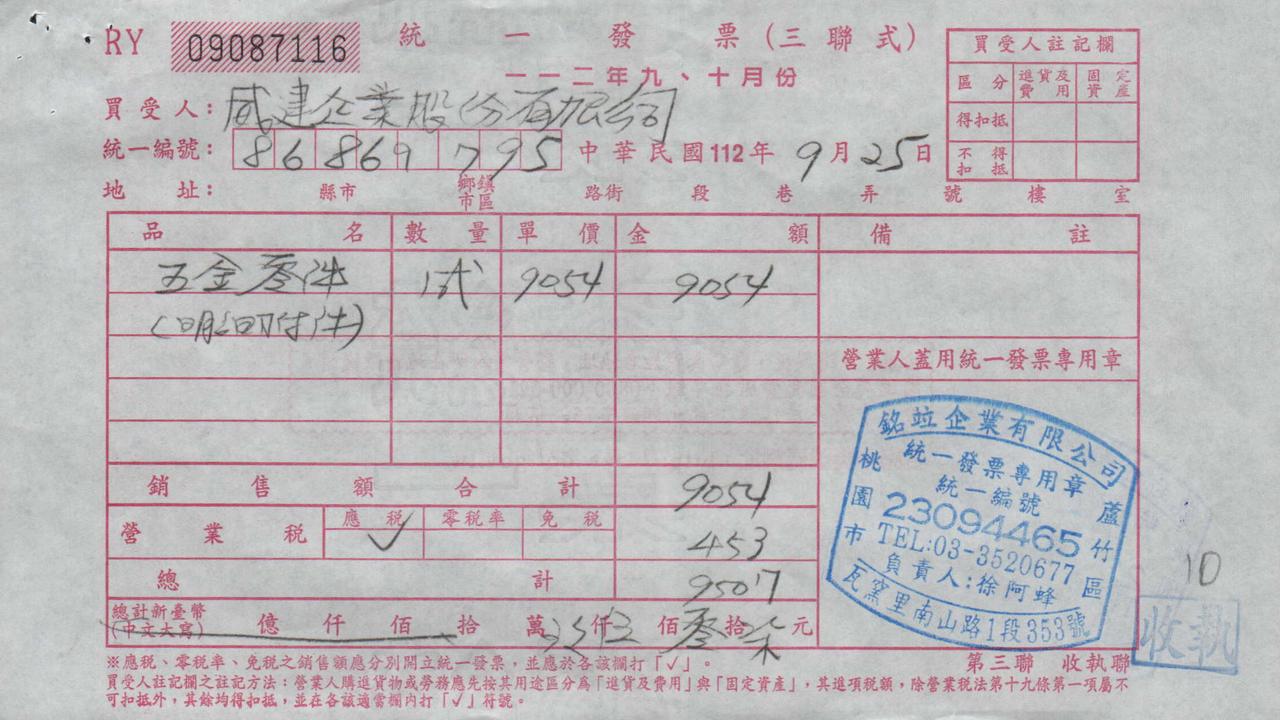 RY 09087116 統一發票(三聯式)
一一二年九、十月份
買受人註記欄
區分 進貨及費用 固定資產
得扣抵
不得扣抵
買受人：威建企業股份有限公司
統一編號：86869795 中華民國112年9月25日
地址： 縣市 鄉鎮市區 路街 段 巷 弄 號 樓 室
品名 數量 單價 金額 備註
五金零件 1式 9054 9054
附件)
營業人蓋用統一發票專用章
銷售額合計 9054
營業稅 應稅 ✓ 零稅率 免稅 453
總計 9507
總計新臺幣(中文大寫) 億 仟 佰 拾 萬 仟 伍 佰 零 拾 柒 元
銘竝企業有限公司
統一發票專用章
統一編號
23094465
TEL:03-3520677
負責人:徐阿蜂
桃園市
蘆竹區
瓦窯里南山路1段353號
10
收執
※應稅、零稅率、免稅之銷售額應分別開立統一發票，並應於各該欄打「✓」。
第三聯 收執聯
買受人註記欄之註記方法：營業人購進貨物或勞務應先按其用途區分為「進貨及費用」與「固定資產」，其進項稅額，除營業稅法第十九條第一項屬不
可扣抵外，其餘均得扣抵，並在各該適當欄內打「✓」符號。